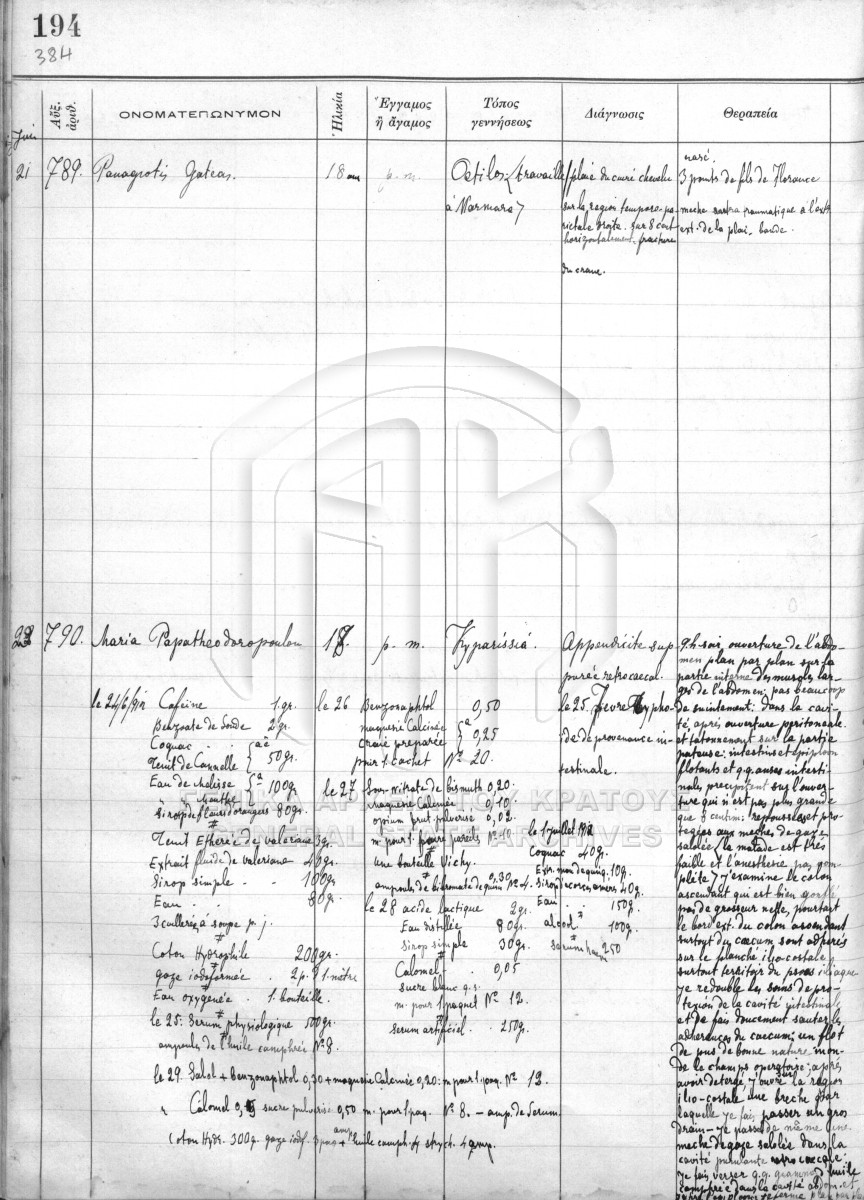 194
384
Αὔξ. ἀριθ.
ΟΝΟΜΑΤΕΠΩΝΥΜΟΝ
Ἡλικία
Ἔγγαμος ἢ ἄγαμος
Τόπος γεννήσεως
Διάγνωσις
Θεραπεία
Juin
21 789. Panagiotis Gateas. 18 ans p. m. Oetilos (travaille
à Marmara)
plaie du cuir chevelu
sur la region temporo-pa-
rietale droite. sur 8 cent
horizontalement. fracture
du crane.
rasé.
3 points de fils de Florence
meche
ext. de la plaie. bande.
790. Maria Papatheodoropoulou p. m. Kyparissia.
Appendicite sup
purée retrocaecal.
le 25. Fievre typho-
ide de provenance in-
testinale.
le 24/6/912 Cafeine 1 gr.
Benzoate de Soude 2 gr.
Cognac
Teint de Cannelle 50 gr.
Eau de Melisse 100 gr.
" Menthe
Sirop de fleurs d'oranger 80 gr.
Teint Etherée de valeriane 3 g.
Extrait fluide de valeriane 40 gr.
Sirop simple 100 gr.
Eau 80 gr.
3 cullerés à soupe p. j.
Coton Hydrophile 200 gr.
gaze iodoformée 2 p. 1 mètre
Eau oxygenée 1 bouteille.
le 25. Serum physiologique 500 gr.
ampoules de l'huile camphrée Nº 8.
le 26 Benzonaphtol 0,50
magnesie Calcinée
craie preparée 0,25
pour 1 cachet Nº 20.
le 27 Sous-nitrate de bismuth 0,20.
magnesie Calcinée 0,10
opium brut pulverisé 0,02
m. pour 1. pareils Nº 10
une bouteille Vichy.
ampoules de bibromate de quin. 0,30 Nº 4.
le 28 acide lactique 2 gr.
Eau distillée 80 gr.
Sirop simple 30 gr.
Calomel 0,05
sucre blanc q.s.
m. pour 1 paquet Nº 12.
serum artificiel 250 g.
le 1 juillet 1912
Cognac 40 gr.
Extr. mou de quinq. 10 g.
Sirop d'ecorces amers 40 g.
Eau 150 g.
alcool 100 g.
serum 250
le 29. Salol + benzonaphtol 0,30 + magnesie Calcinée 0,20. m. pour 1. paq. Nº 12.
" Calomel sucre pulverisé 0,50 m. pour 1 paq. Nº 8. – amp. de Serum.
Coton Hydr. 300 g. gaze iodf. huile camph. strych. 4 amp.
9. h. soir, ouverture de l'abdo-
men plan par plan sur la
partie interne des muscles lar-
ges de l'abdomen; pas beaucoup
de suintement: dans la cavi-
té, après ouverture peritoneale
et tatonnement sur la partie
pateuse: intestins et epiploon
flotants et q.q. anses intesti-
nales precipitent sur l'ouver-
ture qui n'est pas plus grande
que 8 centim: repoussés et pro-
tegées aux meches de gaze
salolée (le malade est très
faible et l'anesthesie pas com-
plète) j'examine le colon
ascendant qui est bien gonflé
pas de grosseur nette, pourtant
le bord ext. du colon ascendant
surtout du caecum sont adherés
sur le planché ilio-costale
surtout territoir du psoas iliaque
je redouble les soins de pro-
texion de la cavité intestinale
et de fais doucement sauter les
adherences du caecum; un flot
de pus de bonne nature inon-
de le champs operatoire; après
avoir detergé, j'ouvre sur la region
ilio-costale, une breche par
laquelle je fais passer un gros
drain – je passe de même une
meche de gaze salolée dans la
cavité purulante retrocaecale:
je fais verser q.q. grammes d'huile
camphrée dans la cavité abdom. et